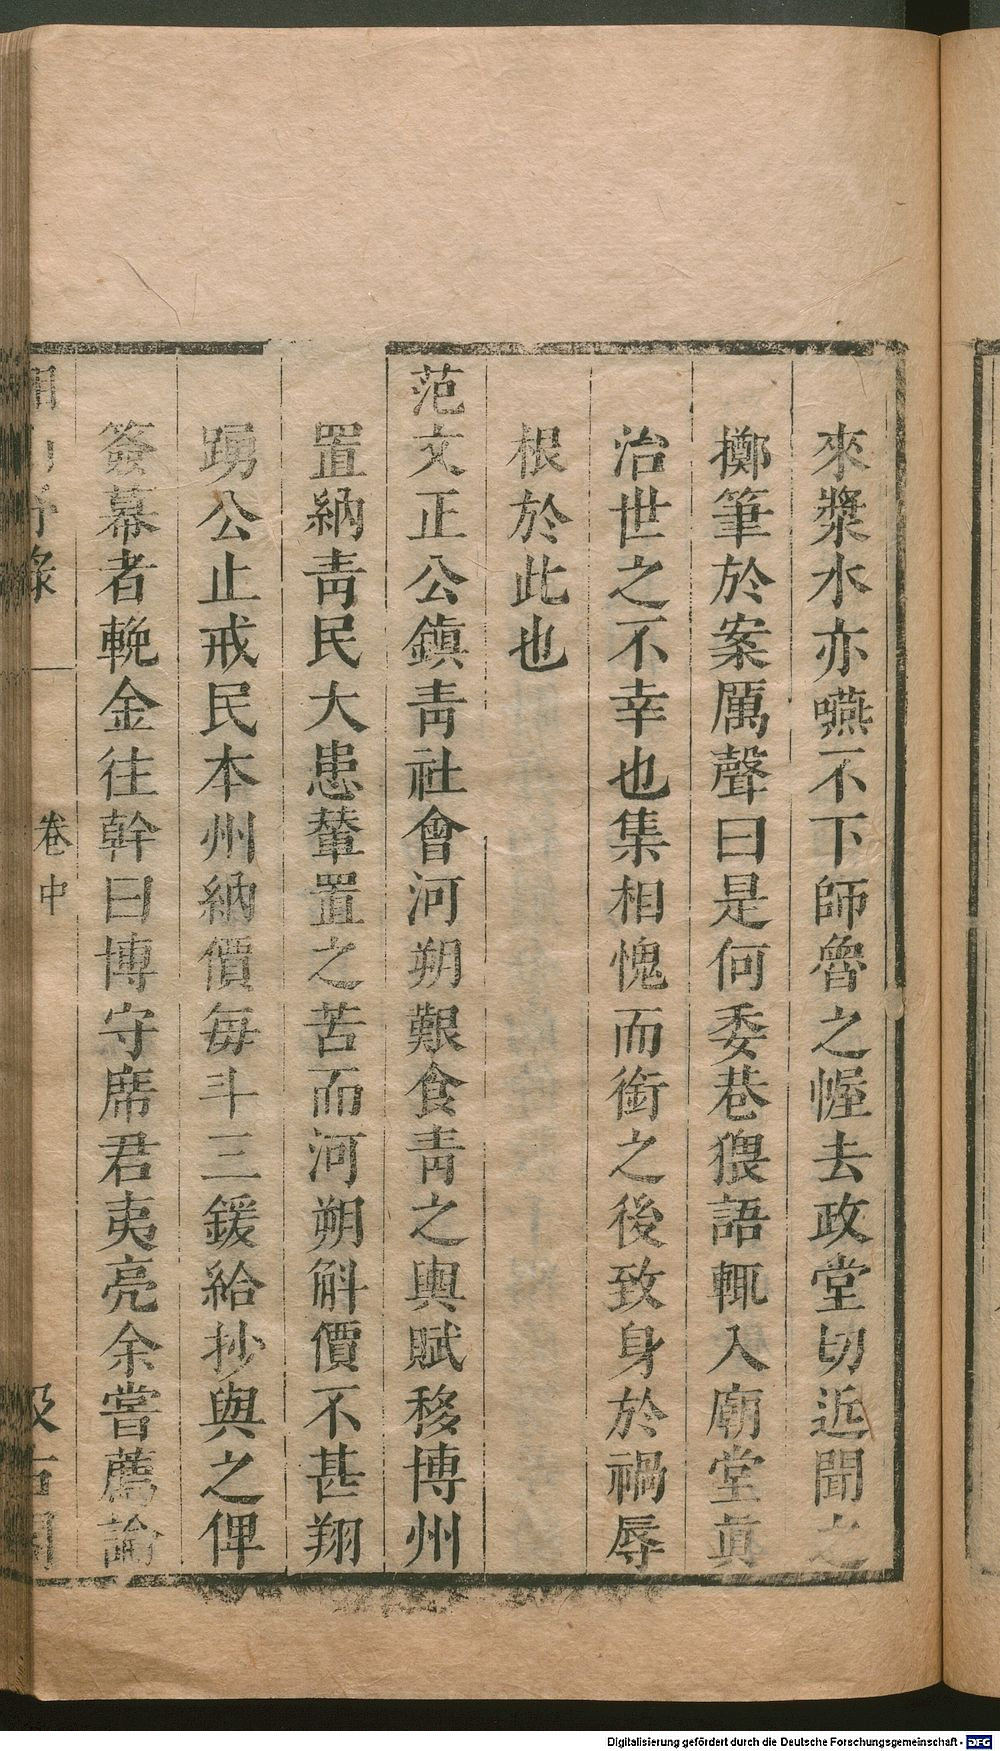 來漿水亦嚥不下師魯之幄去政堂切近聞之
擲筆於案厲聲曰是何委巷猥語輒入廟堂眞
治世之不幸也集相愧而銜之後致身於禍辱
根於此也
范文正公鎭靑社會河朔艱食靑之輿賦移博州
置納靑民大患輦置之苦而河朔斛價不甚翔
踴公止戒民本州納價每斗三鍰給抄與之俾
簽幕者輓金往幹曰博守席君夷亮余嘗薦論
卷中
Digitalisierung gefördert durch die Deutsche Forschungsgemeinschaft - DFG